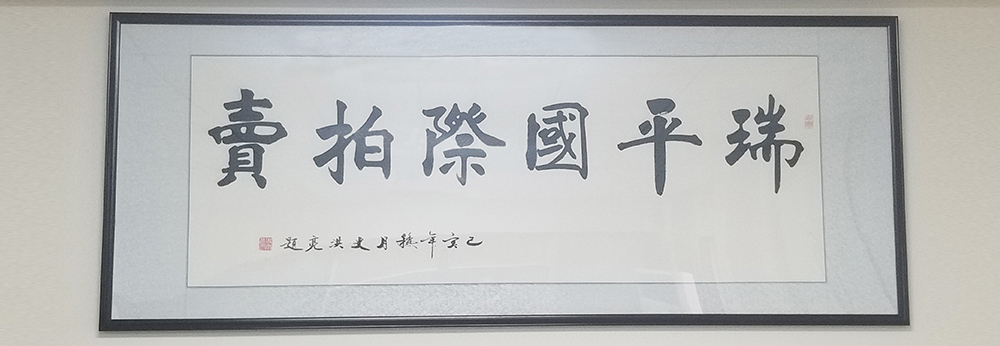 瑞平國際拍賣
己亥年秋月史洪亮題